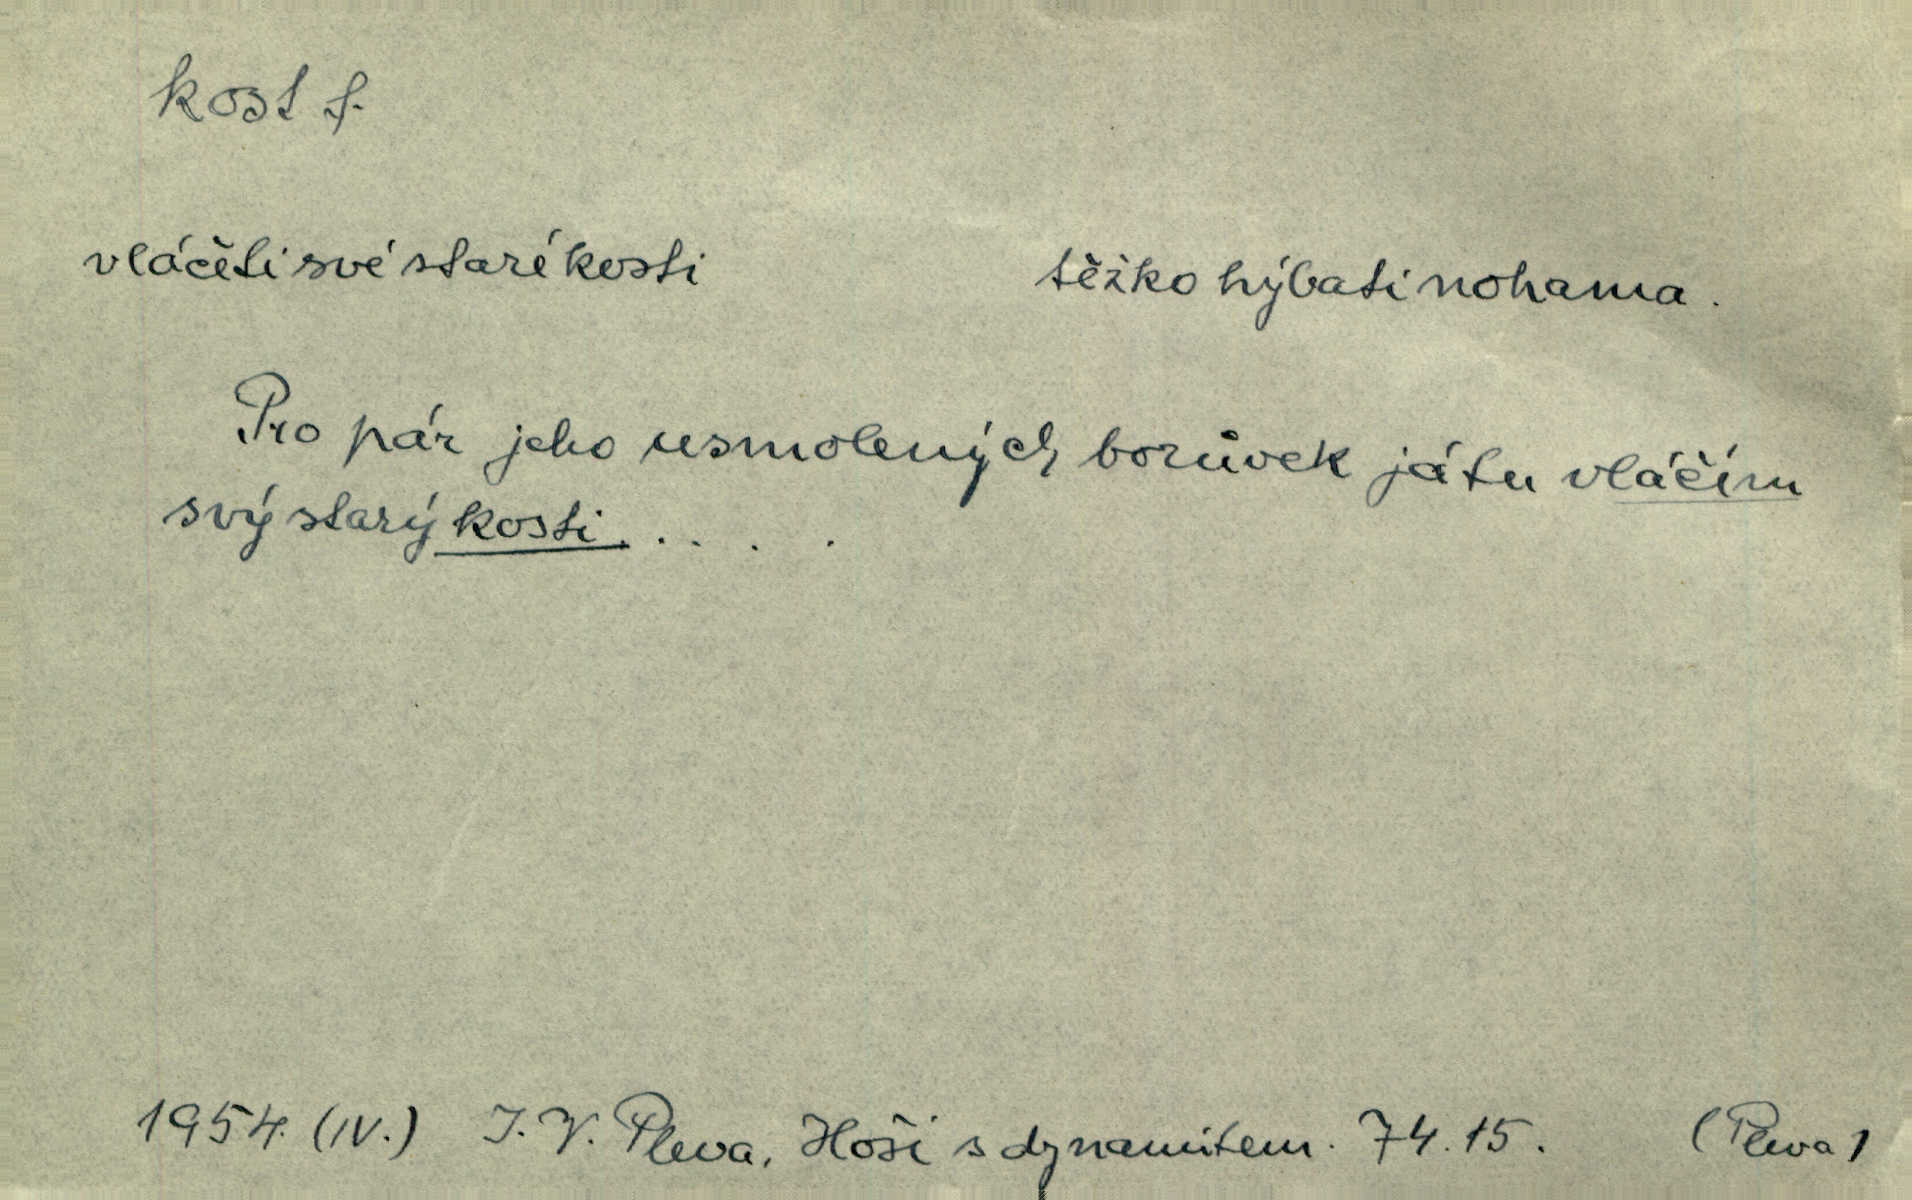 kost f.
vláčeti své staré kosti těžko hýbati nohama.
Pro pár jeho usmolených borůvek já tu vláčím
svý starý kosti.....
1954. (IV.) J. V. Pleva, Hoši s dynamitem. 74.15. (Pleva)